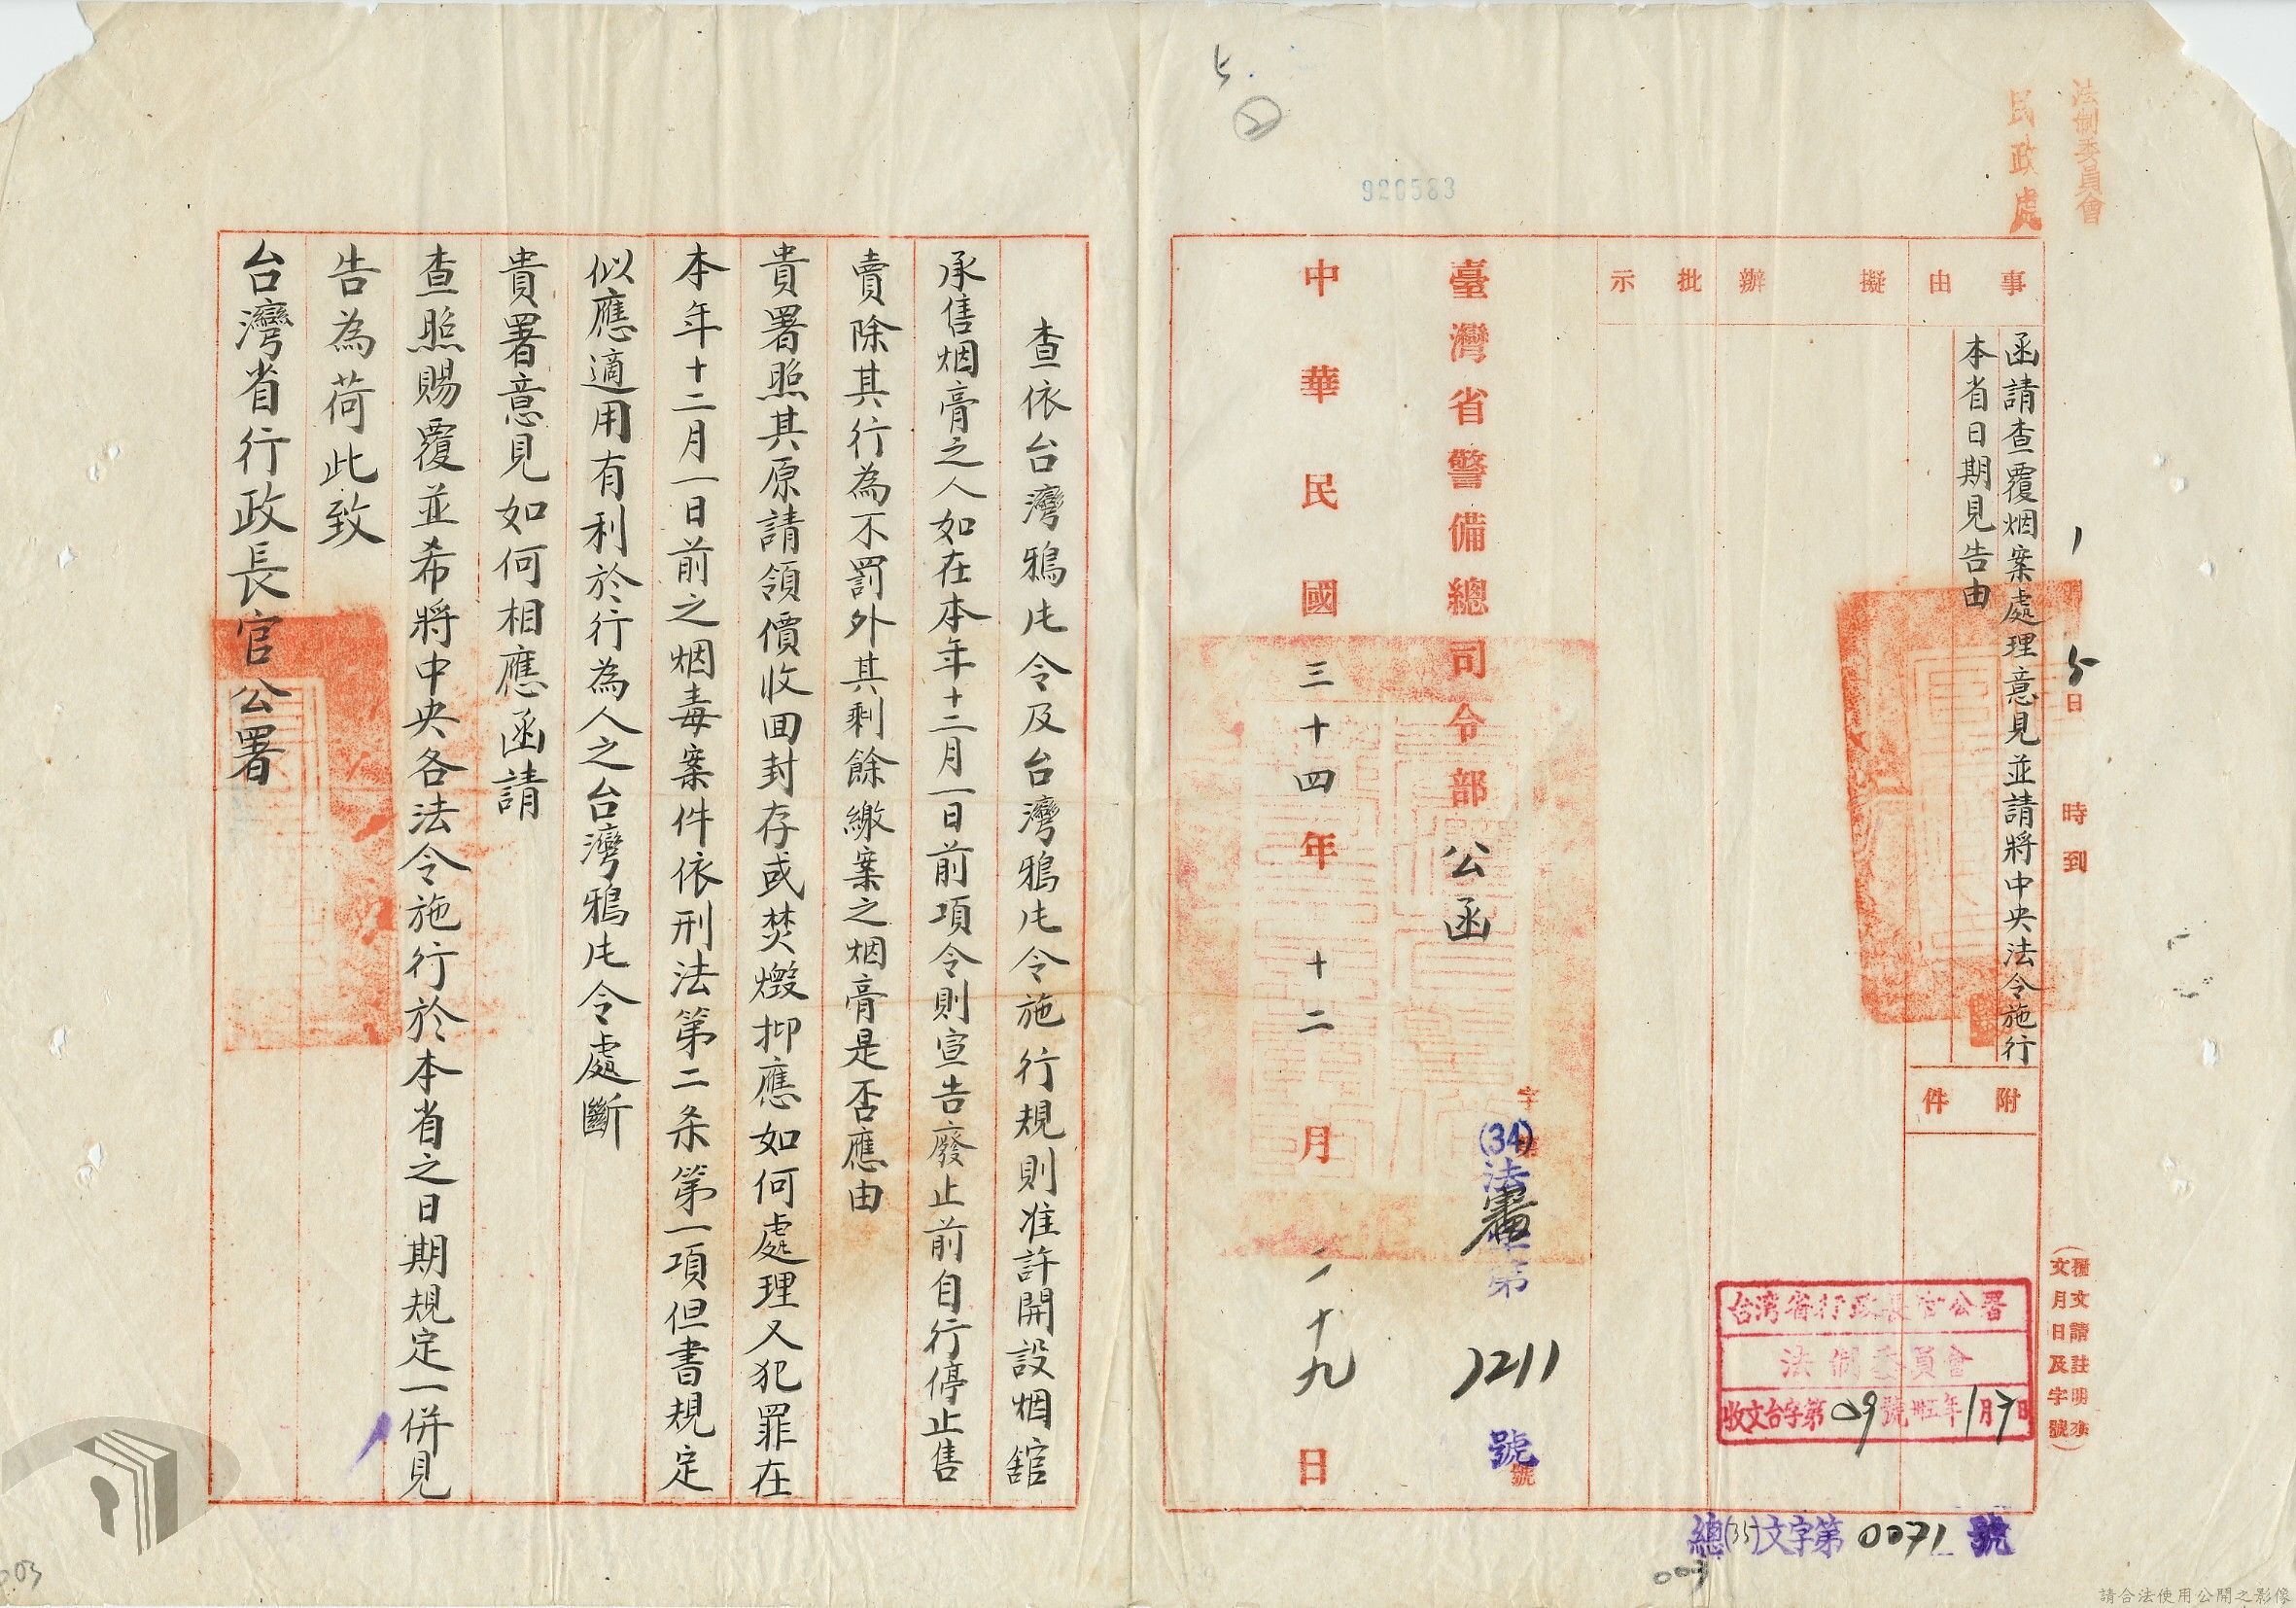 法制委員會
民政處
事由
函請查覆烟案處理意見並請將中央法令施行
本省日期見告由
附件
擬辦
批示
1月5日 時到
(覆文請註明來
文月日及字號)
台湾省行政長官公署
法制委員會
收文台字第09號卅五年1月7日
總(35)文字第0071號
003
920583
臺灣省警備總司令部公函
字第 號
(34)法審字第1211號
中華民國三十四年十二月二十九日
查依台灣鴉片令及台灣鴉片令施行規則准許開設烟舘
承售烟膏之人如在本年十二月一日前項令則宣告廢止前自行停止售
賣除其行為不罰外其剩餘繳案之烟膏是否應由
貴署照其原請領價收回封存或焚燬抑應如何處理又犯罪在
本年十二月一日前之烟毒案件依刑法第二条第一項但書規定
似應適用有利於行為人之台灣鴉片令處斷
貴署意見如何相應函請
查照賜覆並希將中央各法令施行於本省之日期規定一併見
告為荷此致
台灣省行政長官公署
請合法使用公開之影像